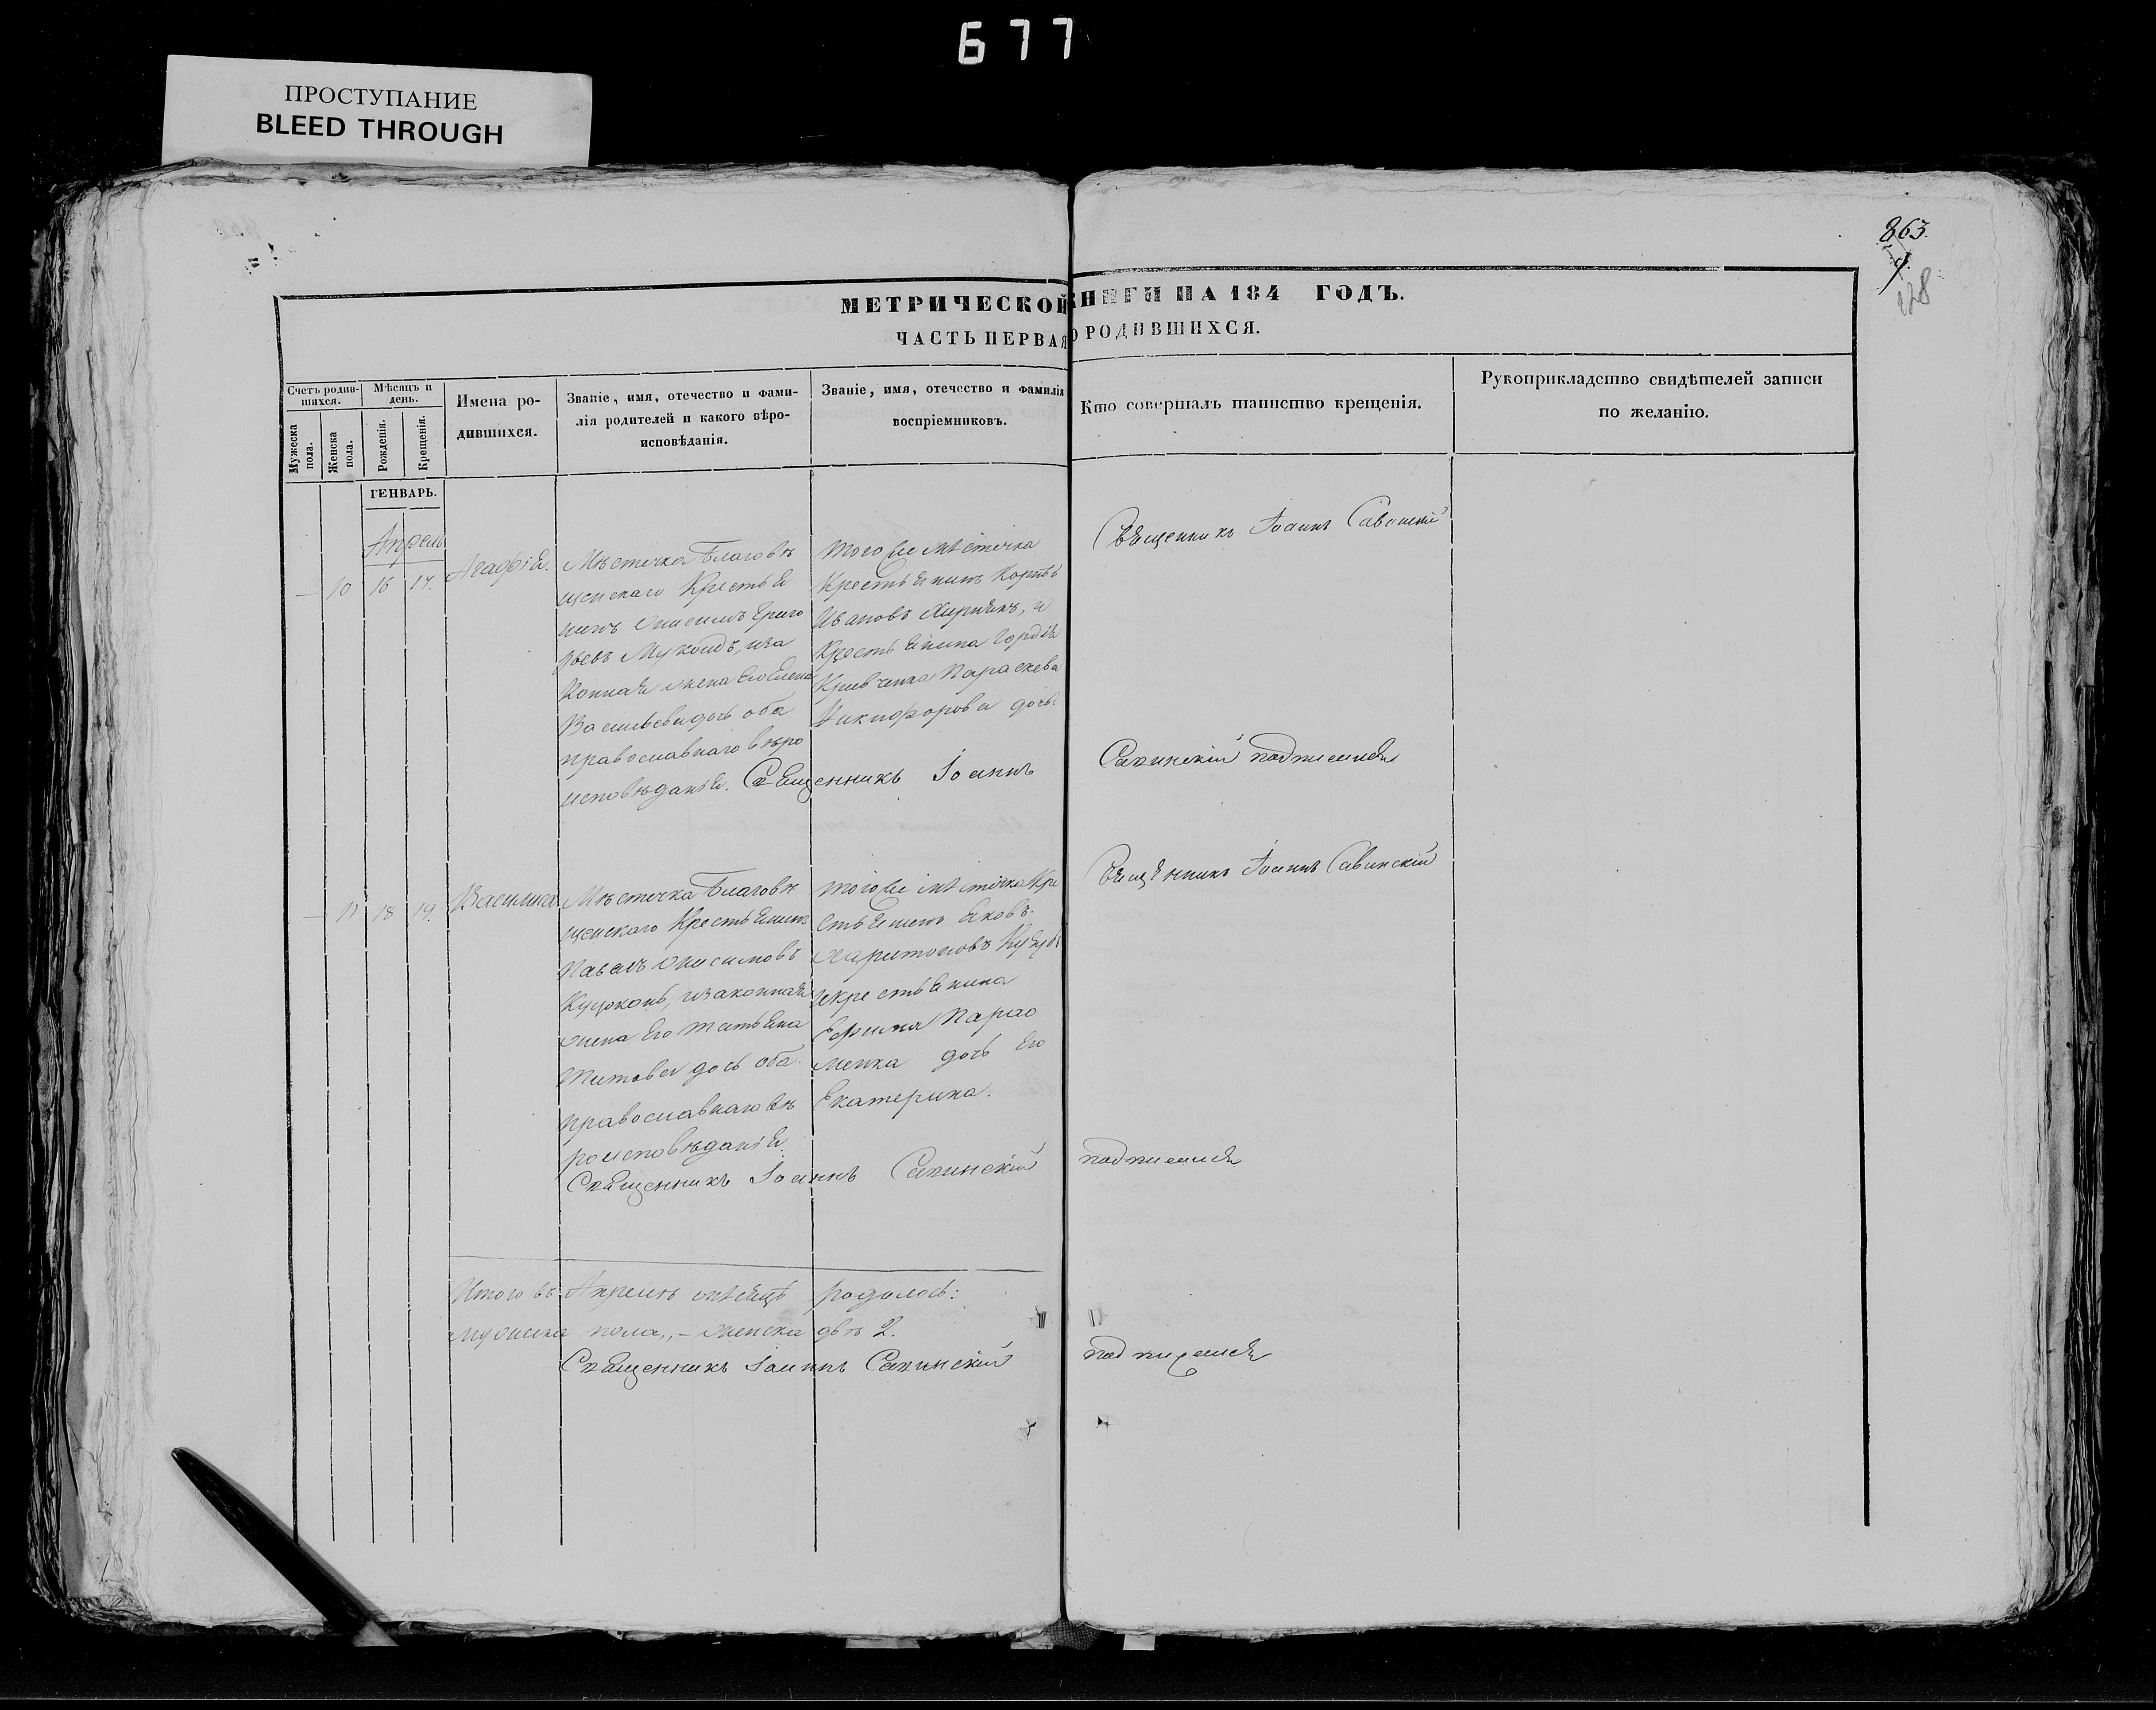 677
ПРОСТУПАНИЕ
BLEED THROUGH
863.
128
МЕТРИЧЕСКОЙ КНИГИ НА 184 ГОДЪ.
ЧАСТЬ ПЕРВАЯ О РОДИВШИХСЯ.
Счетъ родив-
шихся.
Мужеска
пола.
Женска
пола.
Мѣсяцъ и
день.
Рожденія.
Крещенія.
Имена ро-
дившихся.
Званіе, имя, отечество и фами-
лія родителей и какого вѣро-
исповѣданія.
Званіе, имя, отечество и фамилія
воспріемниковъ.
Кто совершалъ таинство крещенія.
Рукоприкладство свидѣтелей записи
по желанію.
ГЕНВАРЬ.
Апрель
— 10 16 17.
Агафія.
Мѣстечка Благовѣ
щенскаго Крестья
нинъ Онисимъ Григо
рьевъ
конная жена Его Елена
Васильева дочь оба
православнаго вѣро
исповѣданія.
того же мѣстечка
Крестьянинъ Корнѣй
Ивановъ и
Крестьянина Гордія
Кривченка Параскева
Никифорова дочь.
Священникъ Іоаннъ Савинскій
Священникъ Іоаннъ Савинскій подписался
— 11 18 19.
Василиса
Мѣстечка Благовѣ
щенскаго Крестьянинъ
Павелъ Онисимовъ
Куцоконь, изаконная
жена Его Татьяна
Титова дочь оба
православнаго вѣ
роисповѣданія.
того же мѣстечка Кре
стьянинъ Яковъ
Харитоновъ
икрестьянина
Ефима Парао
менка дочь Его
Екатерина.
Священникъ Іоаннъ Савинскій
Священникъ Іоаннъ Савинскій подписался
Итого въ Апрелѣ мѣсяцѣ родилось:
мужеска пола,, — женска двѣ 2.
Священникъ Іоаннъ Савинскій подписался